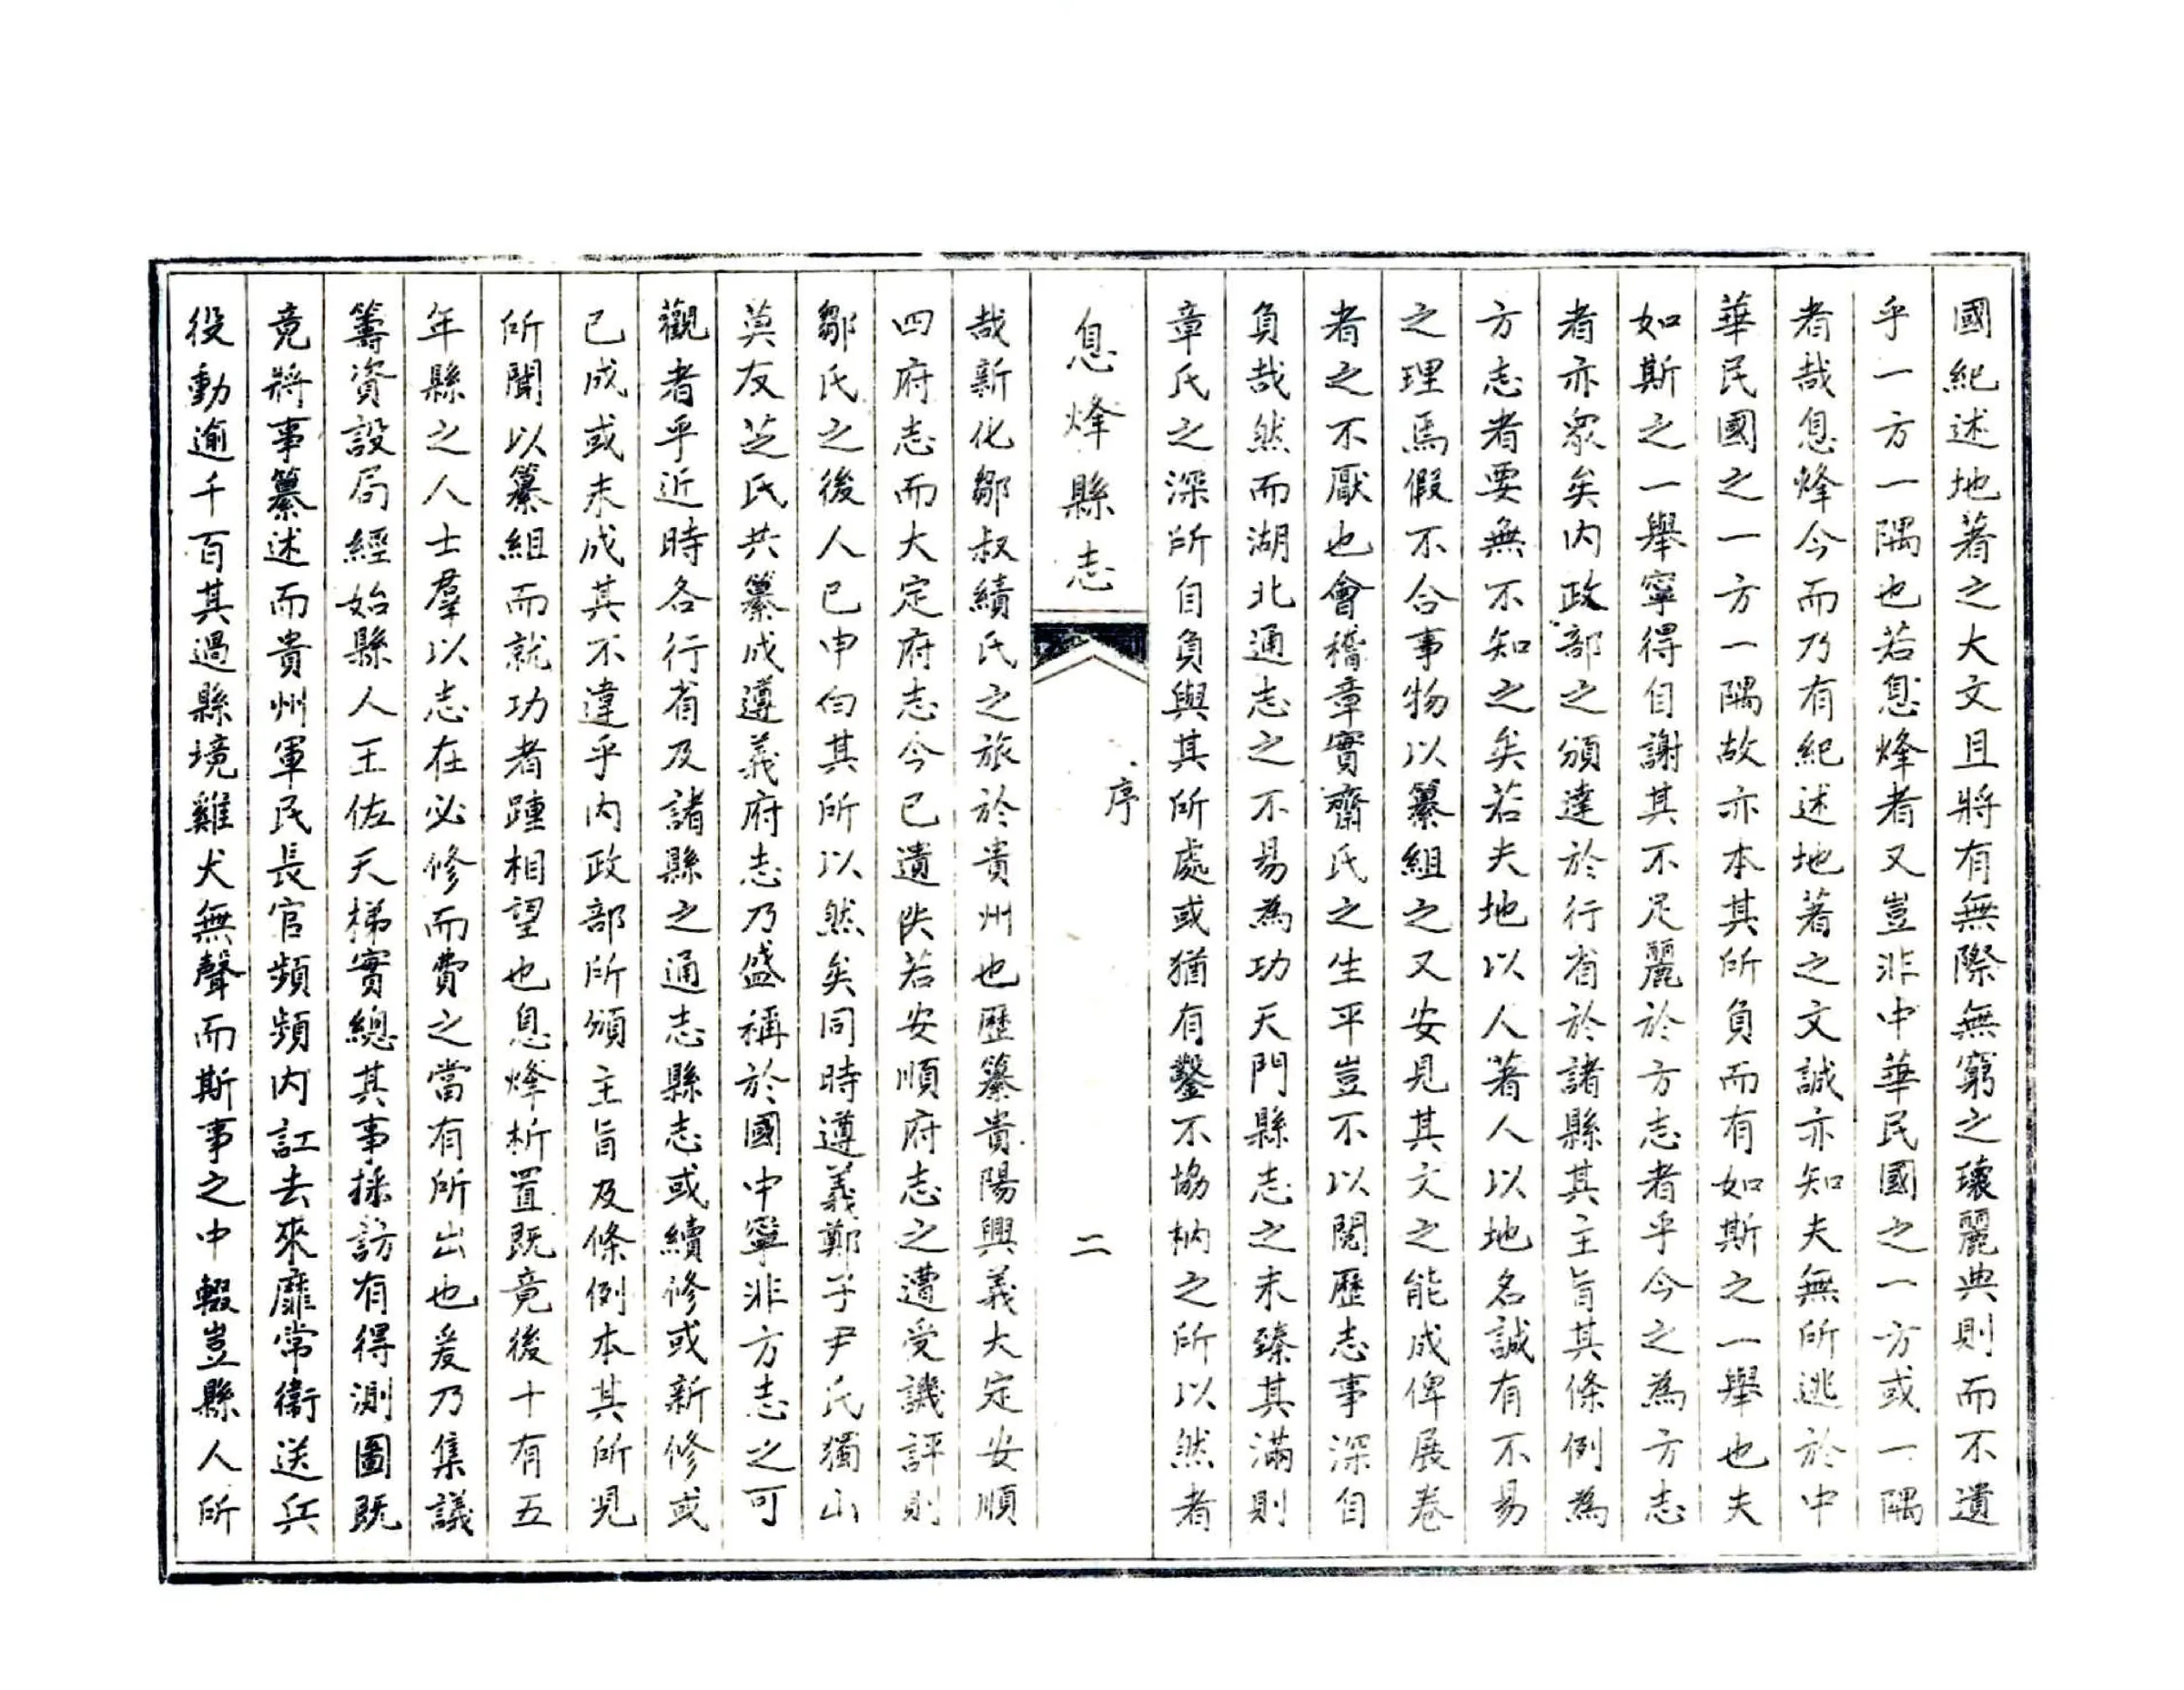 國紀述地著之大文且將有無際無窮之瓌麗典則而不遺
乎一方一隅也若息烽者又豈非中華民國之一方或一隅
者哉息烽今而乃有紀述地著之文誠亦知夫無所逃於中
華民國之一方一隅故亦本其所負而有如斯之一舉也夫
如斯之一舉寧得自謝其不足麗於方志者乎今之為方志
者亦眾矣內政部之頒達於行省於諸縣其主旨其條例為
方志者要無不知之矣若夫地以人著人以地名誠有不易
之理焉假不合事物以纂組之又安見其文之能成俾展卷
者之不厭也會稽章實齋氏之生平豈不以閱歷志事深自
負哉然而湖北通志之不易為功天門縣志之未臻其滿則
章氏之深所自負與其所處或猶有鑿不協枘之所以然者
息烽縣志
序
二
哉新化鄒叔績氏之旅於貴州也歷纂貴陽興義大定安順
四府志而大定府志今已遺佚若安順府志之遭受譏評則
鄒氏之後人已申白其所以然矣同時遵義鄭子尹氏獨山
莫友芝氏共纂成遵義府志乃盛稱於國中寧非方志之可
觀者乎近時各行省及諸縣之通志縣志或續修或新修或
已成或未成其不違乎內政部所頒主旨及條例本其所見
所聞以纂組而就功者踵相望也息烽析置既竟後十有五
年縣之人士羣以志在必修而費之當有所出也爰乃集議
籌資設局經始縣人王佐天梯實總其事採訪有得測圖既
竟將事纂述而貴州軍民長官頻頻內訌去來靡常衛送兵
役動逾千百其過縣境雞犬無聲而斯事之中輟豈縣人所